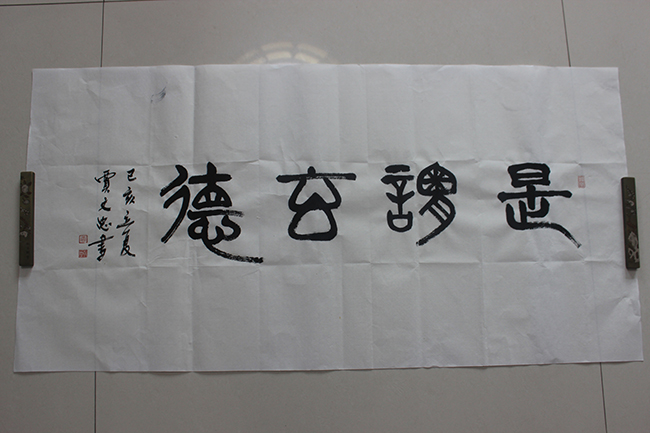 是謂玄德
己亥立夏
賈文忠書